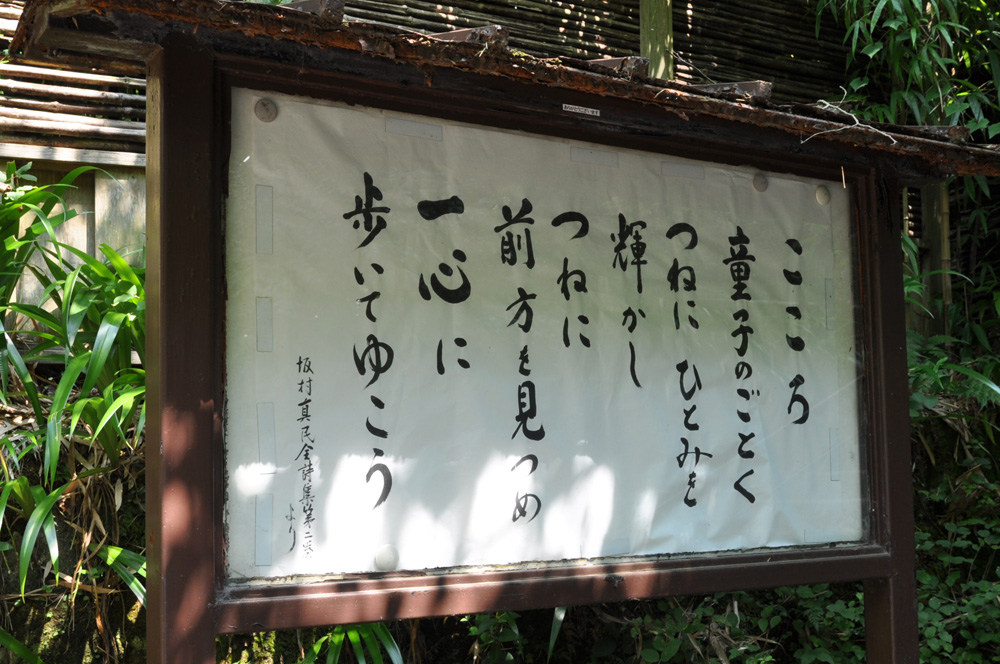 こころ
童子のごとく
つねにひとみを
輝かし
つねに
前方を見つめ
一心に
歩いてゆこう
坂村真民全詩集第二巻
より